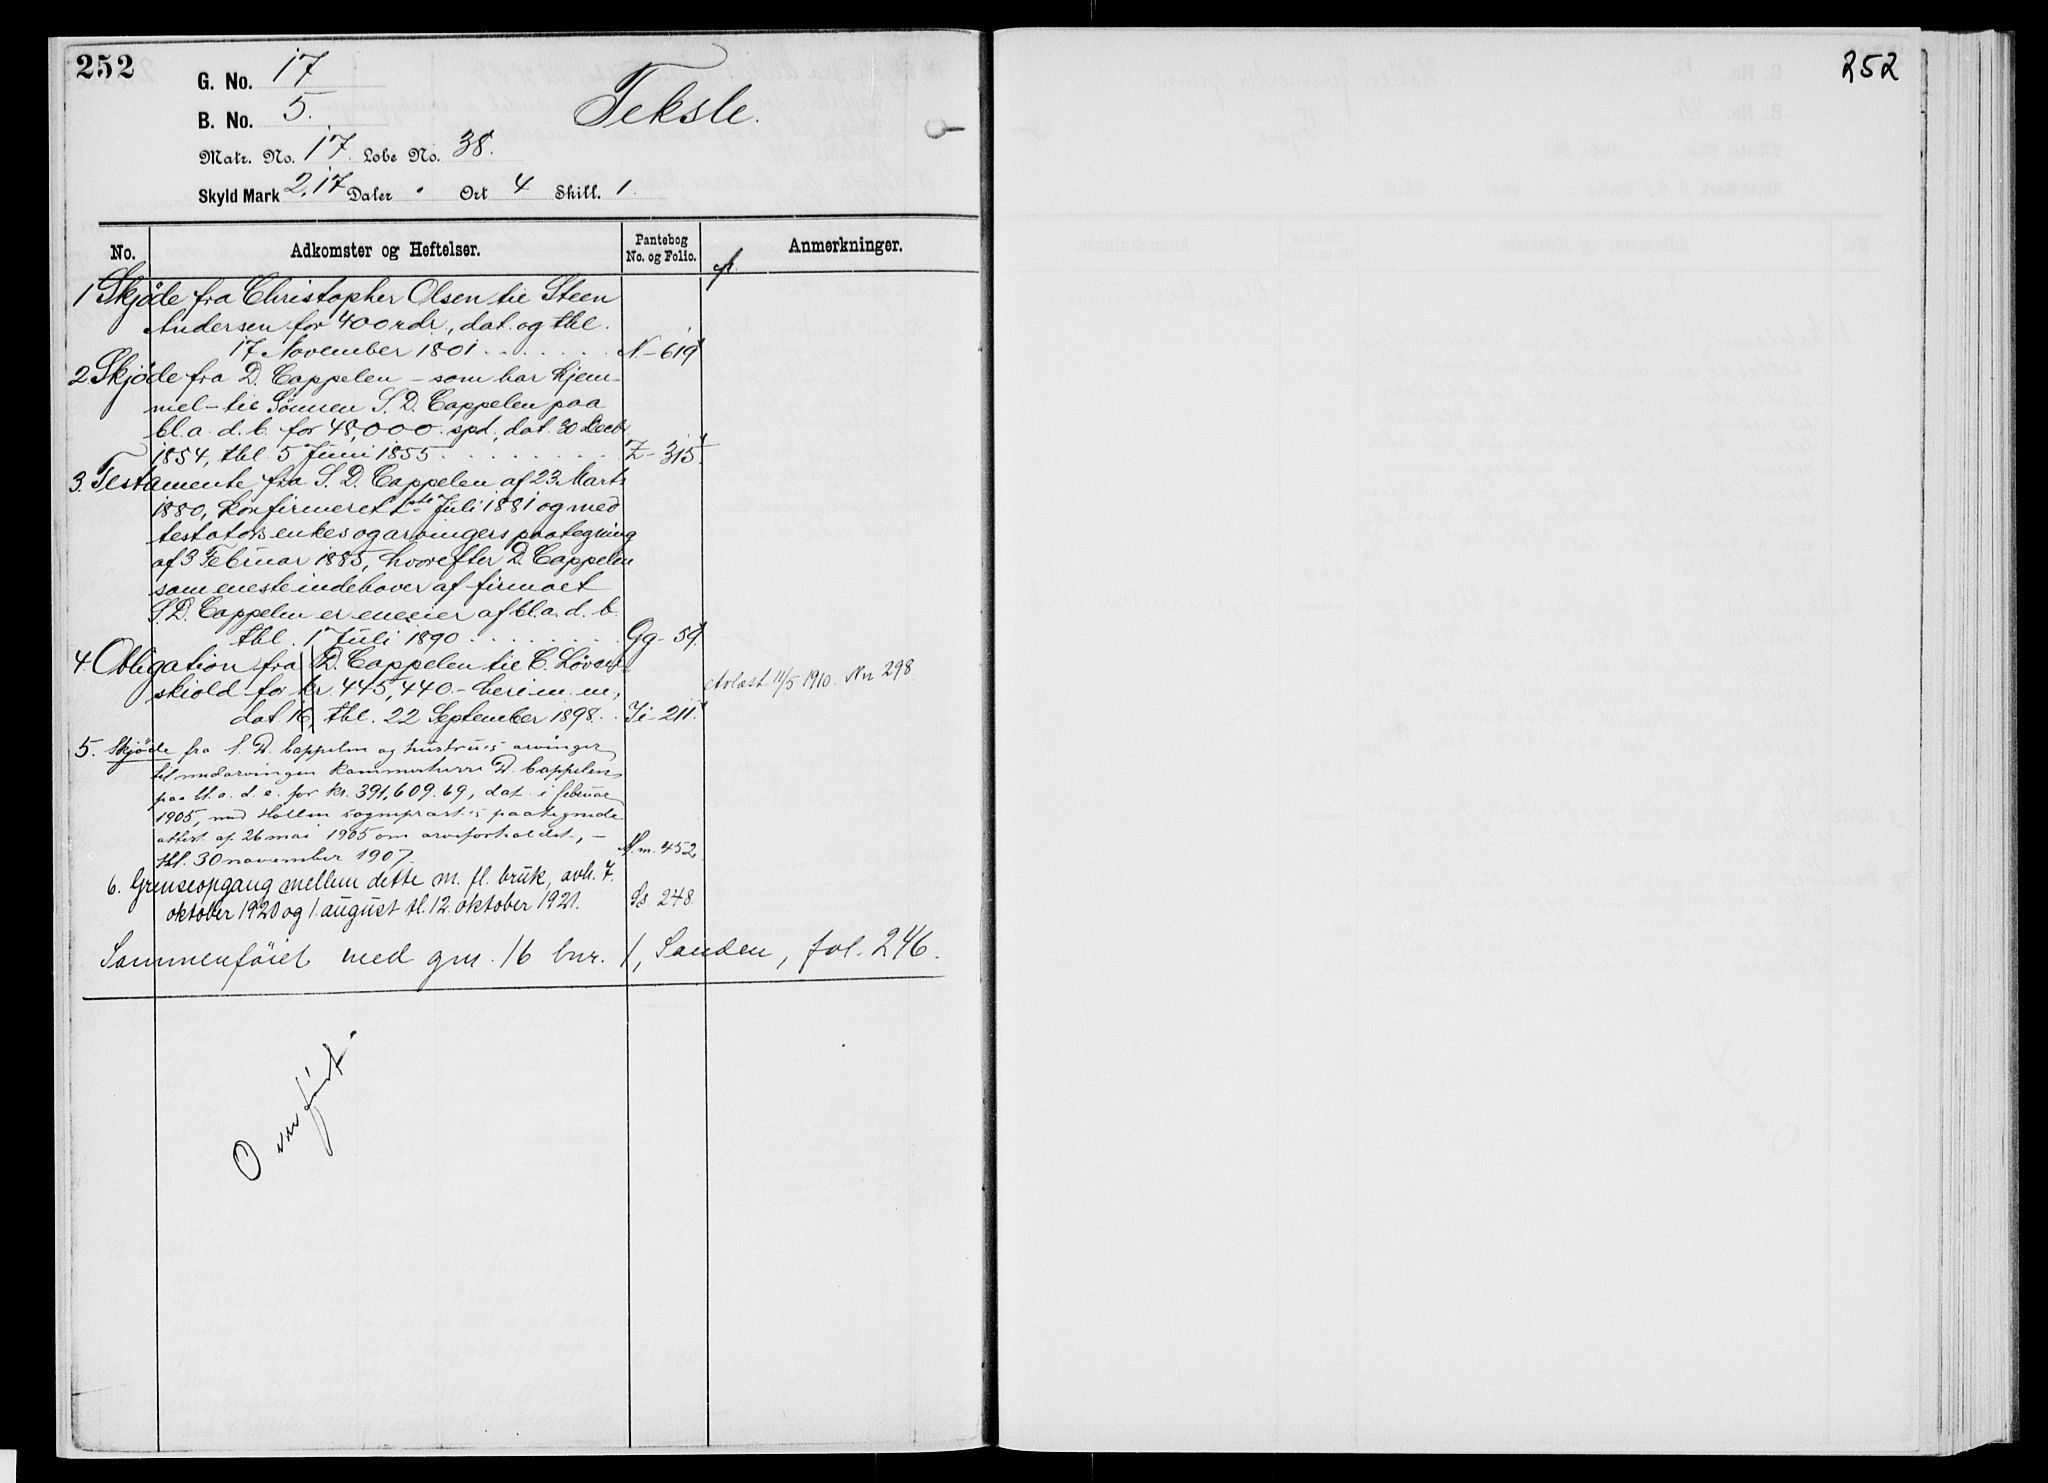 252
G. No. 17
B. No. 5.
Teksle.
Matr. No. 17. Løbe No. 38.
Skyld Mark 2,17 Daler " Ort 4 Skill. 1.
No. Adkomster og Heftelser. Pantebog No. og Folio. Anmerkninger.
1 Skjöde fra Christopher Olsen til Steen
Andersen for 400 rdr, dat. og tbl.
17 November 1801 . . . . . . N-619
2 Skjöde fra D. Cappelen - som har hjem-
mel - til Sönnen S. D. Cappelen paa
bl.a. d. b. for 48,000 spd., dat. 30 Decbr
1854, tbl. 5 Juni 1855 . . . . . . Z-315.
3. Testamente fra S. D. Cappelen af 23 Marts
1880, konfirmeret 1ste Juli 1881 og med
testators enkes og arvingers paategning
af 3 Februar 1885, hvorefter D. Cappelen
som eneste indehaver af firmaet
S. D. Cappelen er eneeier af bl.a. d. b.
tbl. 1 Juli 1890 . . . . . . Gg-59.
4. Obligation fra D. Cappelen til C. Løven-
skiold for kr. 445,440.- heri m. m., Avlæst 11/5 1910. Nr 298.
dat 16, tbl. 22 September 1898. . Ii-211.
5. Skjöde fra S. D. Cappelen og hustru's arvinger
til medarvingen kammerherre D. Cappelen
paa bl.a. d. e. for kr. 391,609.69, dat. i februar
1905, med Hollen sogneprest's paategnede
attest af 26 mai 1905 om arveforholdet, -
tbl. 30 november 1907. M.m. 452.
6. Grenseopgang mellem dette m. fl. bruk, avh. 7.
oktober 1920 og 1. august tl. 12. oktober 1921. Ss. 248.
Sammenföiet med gnr. 16 bnr. 1, Sanden, fol. 246.
Overført.
252